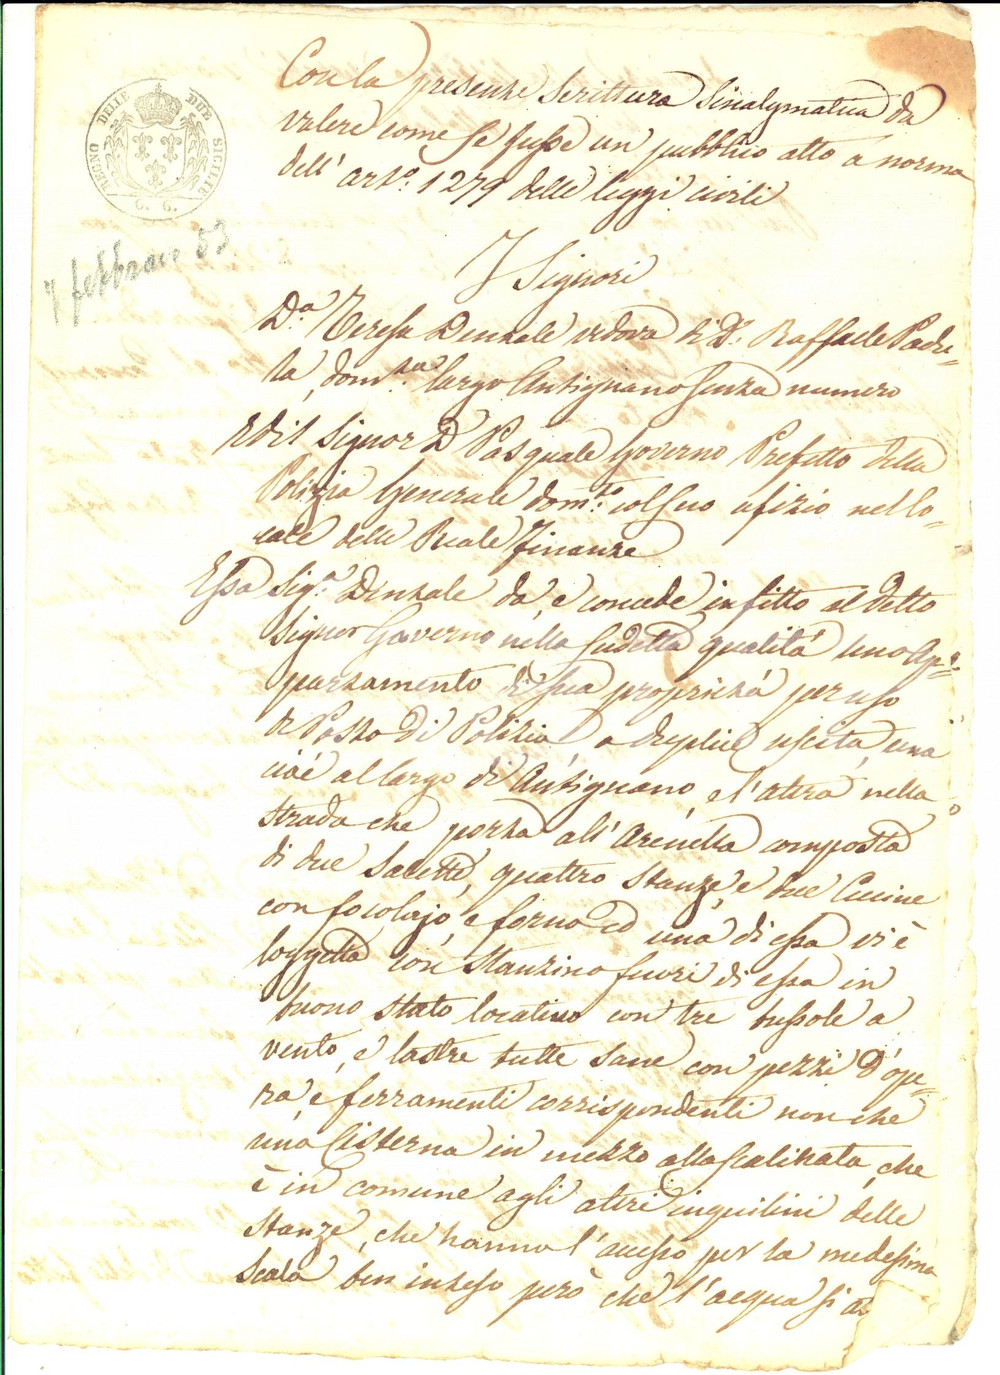 REGNO DELLE DUE SICILIE
G. G.
7 febbraio 53
Con la presente scrittura sinalgmatica da
valere come se fusse un pubblico atto a norma
dell' arto. 1279 delle leggi civili
I Signori
Da. Teresa vedova di D. Raffaele Padu=
la, domta. largo Antignano senza numero
Ed il Signor D Pasquale Governo Prefetto della
Polizia Generale domto. col suo ufizio nel lo=
cale delle Reale Finanze
Essa Siga. dà, e concede in fitto al detto
Signor Governo nella sudetta qualità uno Ap=
partamento di sua proprietà per uso
di Posto di Polizia a duplice uscita, una
cioè al largo di Antignano, e l'altra nella
strada che porta all'Arenella composta
di due Salette, quattro stanze, e due Cucine
con focolajo, e forno ed una di essa vi è
loggetta con stanzino fuori di essa in
buono stato locativo con tre bussole a
vento, e lastre tutte sane con pezzi d'ope=
ra, e ferramenti corrispondenti non che
una Cisterna in mezzo alla scalinata, che
è in comune agli altri inquilini delle
stanze, che hanno l'accesso per la medesima
scala ben inteso però che l'acqua si